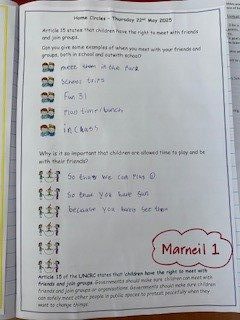 Home Circles – Thursday 22nd May 2025
Article 15 states that children have the right to meet with friends
and join groups.
Can you give some examples of when you meet with your friends and
groups, both in school and outwith school?
meet them in the Park
School trips
Fun 31
Play time/lunch
in class
Why is it so important that children are allowed time to play and be
with their friends?
So we can play
So that you have fun
because you have see them
Marneil 1
Article 15 of the UNCRC states that children have the right to meet with
friends and join groups. Governments should make sure children can meet with
friends and join groups or organisations. Governments should make sure children
can safely meet other people in public spaces to protest peacefully when they
want to change things.